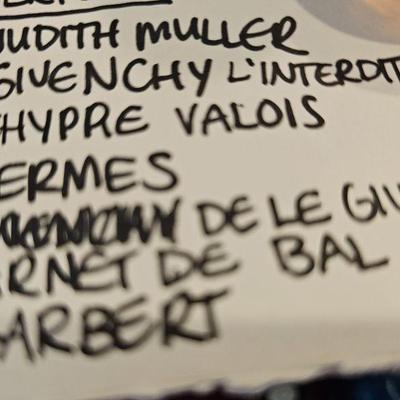 JUDITH MULLER
GIVENCHY L'INTERDIT
HYPRE VALOIS
ERMES
DE LE GIV
RNET DE BAL
ARBERT